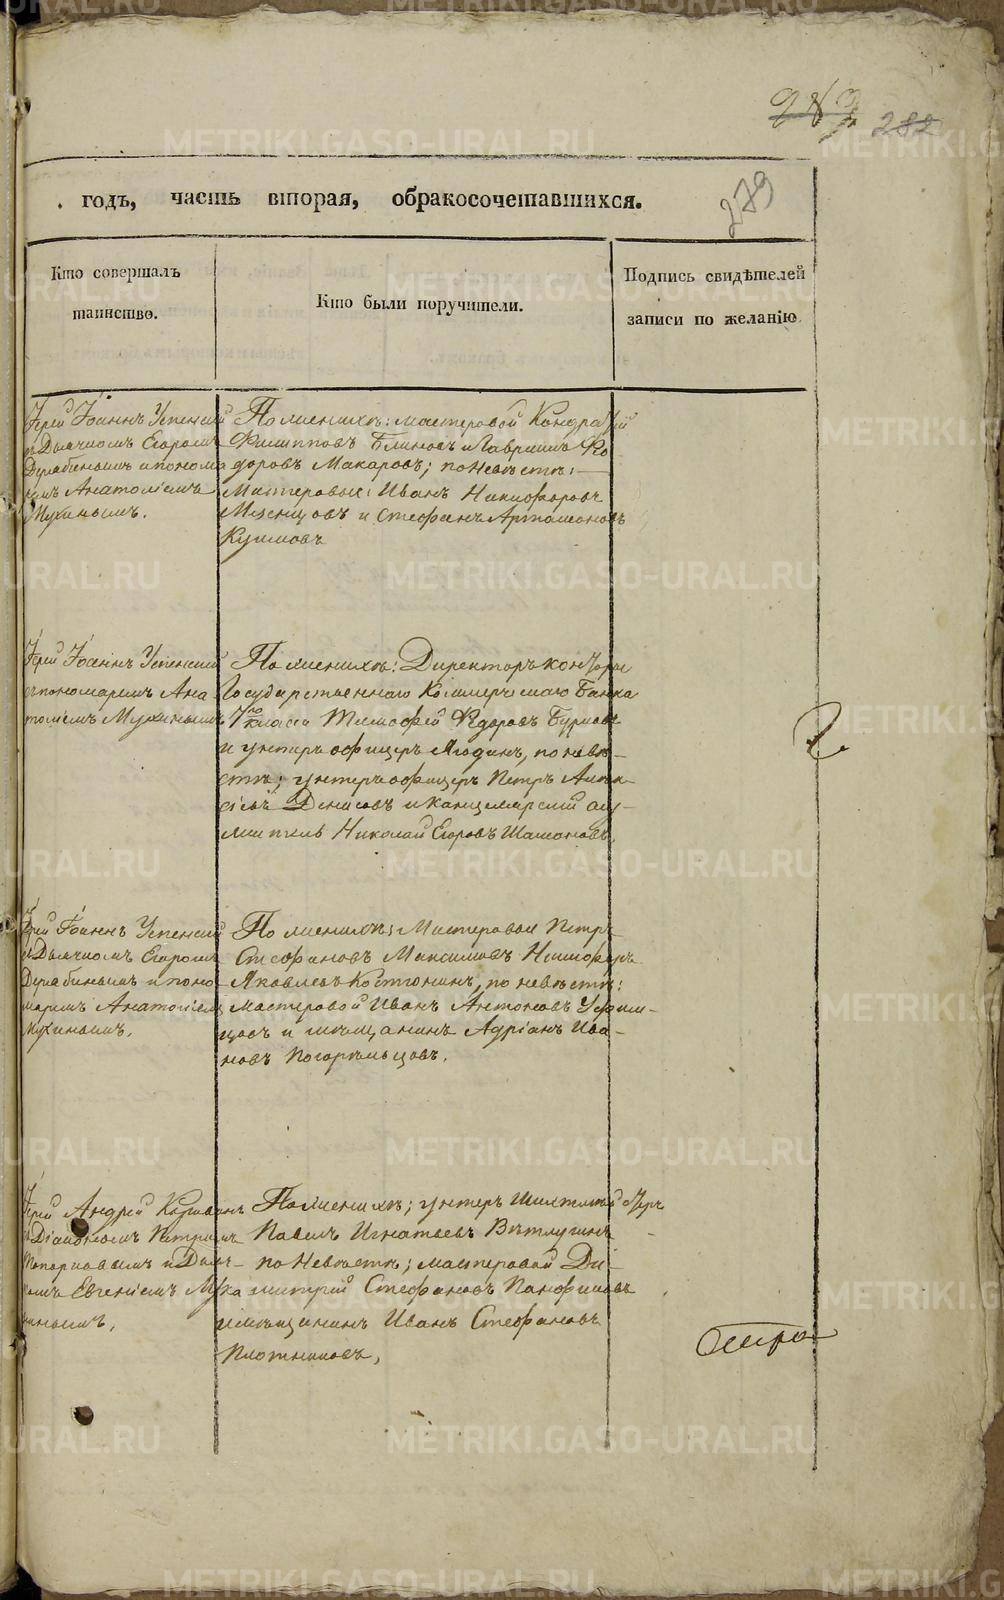 282
279
годъ, часть вторая, обракосочетавшихся.
Кто совершалъ
таинство.
Кто были поручители.
Подпись свидѣтелей
записи по желанію
Іерей Іоаннъ Успенскій
съ Дьячкомъ Егоромъ
Дерябинымъ и понома
ремъ Анатоліемъ
Мухинымъ.
По женихѣ: мастеровой Кондратій
Филипповъ Блиновъ и Гавріилъ Фе
доровъ Макаровъ; по невѣстѣ:
Мастеровые: Иванъ Никифоровъ
и Стефанъ Артамоновъ
Іерей Іоаннъ Успенскій
съ пономаремъ Ана
толіемъ Мухинымъ
По женихѣ: Директоръ конторы
Государственнаго Коммерческаго Банка
7го класса Тимофей Ѳедоровъ
и унтеръ офицеръ Ягодинъ, по невѣ-
стѣ; унтеръ офицеръ Петръ Алек
сіевъ Денисовъ и канцелярскій слу-
житель Николай Егоровъ
Іерей Іоаннъ Успенскій
съ Дьячкомъ Егоромъ
Дерябинымъ и поно
маремъ Анатоліемъ
Мухинымъ.
По женихѣ; Мастеровой Петръ
Стефановъ Максимовъ
Яковлевъ Костюнинъ, по невѣстѣ:
мастеровой Иванъ Антоновъ Уфим-
цовъ и мѣщанинъ Адріанъ Ива-
новъ Погорѣльцовъ.
Іерей Андрей
и Діакономъ Петромъ
и Дьяч-
комъ Евгеніемъ Мука
нинымъ,
По женихѣ; унтеръ Шихтмейстеръ
Павелъ Игнатьевъ Ветлугинъ
по Невѣстѣ; мастеровой Ди-
митрій Стефановъ Панфиловъ
и мѣщанинъ Иванъ Стефановъ
Плотниковъ,
METRIKI.GASO-URAL.RU